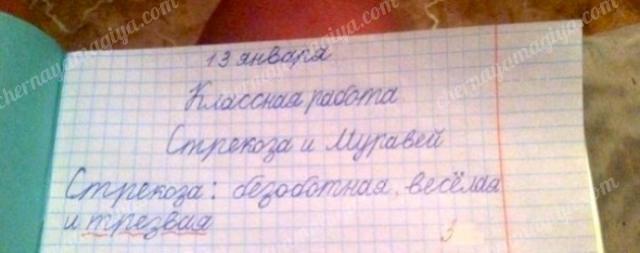 13 января
Классная работа
Стрекоза и Муравей
Стрекоза: безоботная, весёлая
и трезвая
3
chernayamagiya.com